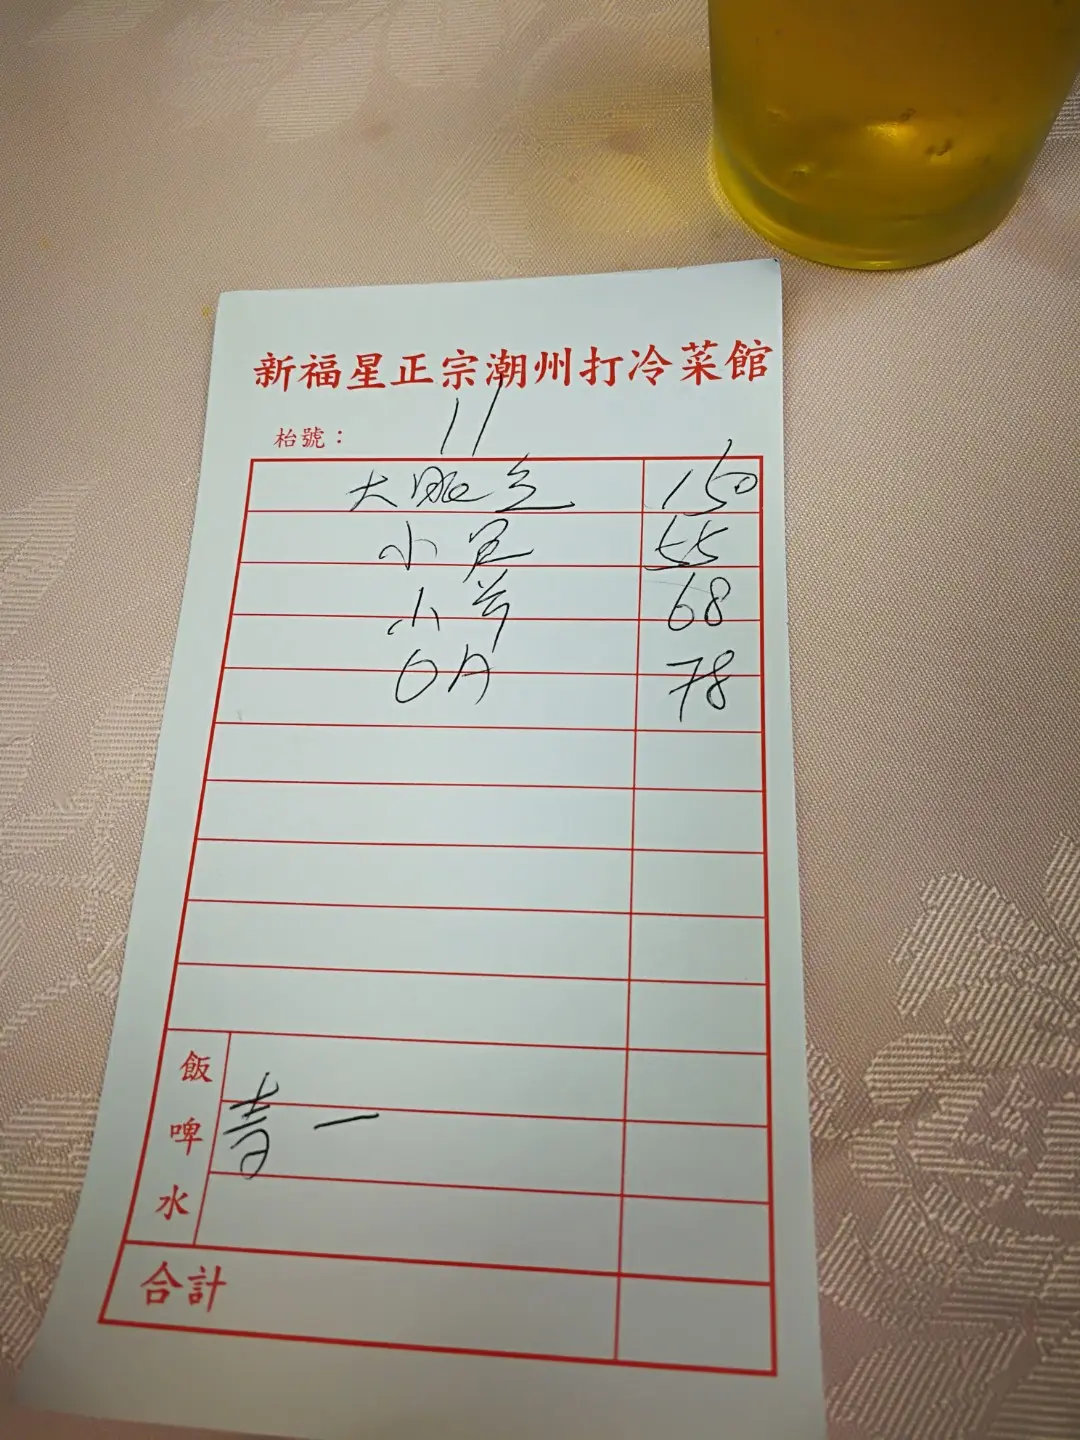 新福星正宗潮州打冷菜館
枱號： 11
大 150
小 55
小 68
OA 78
飯
啤 青 一
水
合計